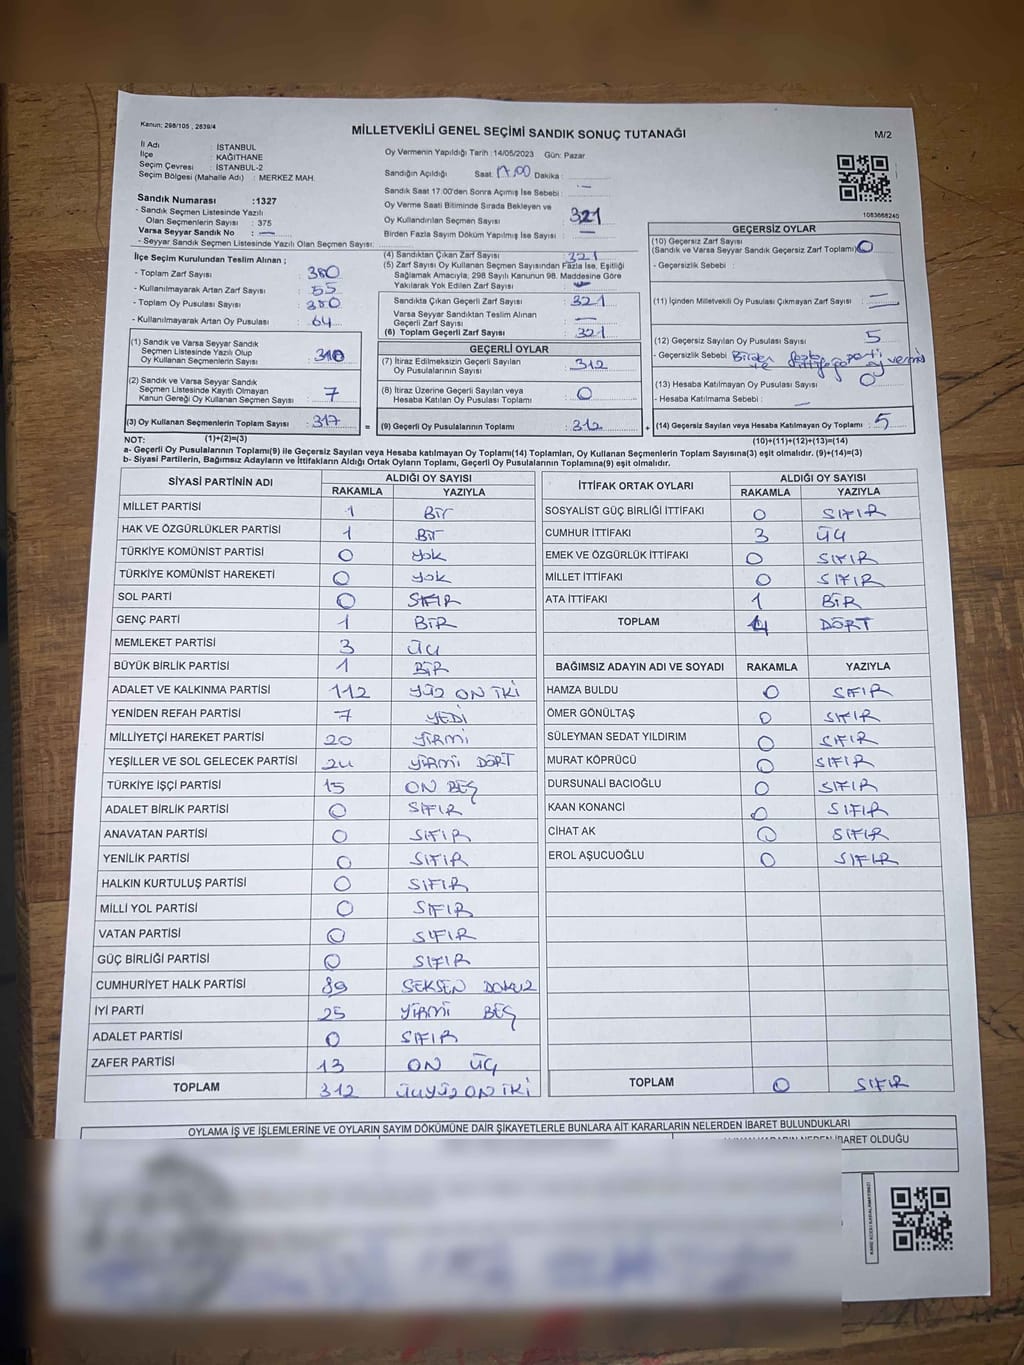 Kanun; 298/105 , 2839/4
MİLLETVEKİLİ GENEL SEÇİMİ SANDIK SONUÇ TUTANAĞI
M/2
İl Adı : İSTANBUL
İlçe : KAĞITHANE
Seçim Çevresi : İSTANBUL-2
Seçim Bölgesi (Mahalle Adı) : MERKEZ MAH.
Sandık Numarası :1327
- Sandık Seçmen Listesinde Yazılı
Olan Seçmenlerin Sayısı : 375
Varsa Seyyar Sandık No : —
- Seyyar Sandık Seçmen Listesinde Yazılı Olan Seçmen Sayısı:
Oy Vermenin Yapıldığı Tarih : 14/05/2023 Gün: Pazar
Sandığın Açıldığı Saat 17.00 Dakika :
Sandık Saat 17:00'den Sonra Açımış İse Sebebi : —
Oy Verme Saati Bitiminde Sırada Bekleyen ve
Oy Kullandırılan Seçmen Sayısı 321
Birden Fazla Sayım Döküm Yapılmış İse Sayısı : —
1083668240
İlçe Seçim Kurulundan Teslim Alınan ;
- Toplam Zarf Sayısı : 380
- Kullanılmayarak Artan Zarf Sayısı : 55
- Toplam Oy Pusulası Sayısı : 380
- Kullanılmayarak Artan Oy Pusulası : 64
(1) Sandık ve Varsa Seyyar Sandık
Seçmen Listesinde Yazılı Olup
Oy Kullanan Seçmenlerin Sayısı : 310
(2) Sandık ve Varsa Seyyar Sandık
Seçmen Listesinde Kayıtlı Olmayan
Kanun Gereği Oy Kullanan Seçmen Sayısı : 7
(3) Oy Kullanan Seçmenlerin Toplam Sayısı : 317
(4) Sandıktan Çıkan Zarf Sayısı : 321
(5) Zarf Sayısı Oy Kullanan Seçmen Sayısından Fazla İse, Eşitliği
Sağlamak Amacıyla, 298 Sayılı Kanunun 98. Maddesine Göre
Yakılarak Yok Edilen Zarf Sayısı :
Sandıkta Çıkan Geçerli Zarf Sayısı : 321
Varsa Seyyar Sandıktan Teslim Alınan
Geçerli Zarf Sayısı : —
(6) Toplam Geçerli Zarf Sayısı : 321
GEÇERLİ OYLAR
(7) İtiraz Edilmeksizin Geçerli Sayılan
Oy Pusulalarının Sayısı : 312
(8) İtiraz Üzerine Geçerli Sayılan veya
Hesaba Katılan Oy Pusulası Toplamı : 0
= (9) Geçerli Oy Pusulalarının Toplamı : 312
GEÇERSİZ OYLAR
(10) Geçersiz Zarf Sayısı
(Sandık ve Varsa Seyyar Sandık Geçersiz Zarf Toplamı) 0
- Geçersizlik Sebebi :
(11) İçinden Milletvekili Oy Pusulası Çıkmayan Zarf Sayısı : —
(12) Geçersiz Sayılan Oy Pusulası Sayısı : 5
- Geçersizlik Sebebi : Birden fazla parti
ve ittifaka oy vermiş
(13) Hesaba Katılmayan Oy Pusulası Sayısı : 0
- Hesaba Katılmama Sebebi : —
+ (14) Geçersiz Sayılan veya Hesaba Katılmayan Oy Toplamı : 5
NOT: (1)+(2)=(3) (10)+(11)+(12)+(13)=(14)
a- Geçerli Oy Pusulasının Toplamı(9) ile Geçersiz Sayılan veya Hesaba katılmayan Oy Toplamı(14) Toplamları, Oy Kullanan Seçmenlerin Toplam Sayısına(3) eşit olmalıdır. (9)+(14)=(3)
b- Siyasi Partilerin, Bağımsız Adayların ve İttifakların Aldığı Ortak Oyların Toplamı, Geçerli Oy Pusulalarının Toplamına(9) eşit olmalıdır.
SİYASİ PARTİNİN ADI ALDIĞI OY SAYISI
RAKAMLA YAZIYLA
MİLLET PARTİSİ 1 Bir
HAK VE ÖZGÜRLÜKLER PARTİSİ 1 Bir
TÜRKİYE KOMÜNİST PARTİSİ 0 Yok
TÜRKİYE KOMÜNİST HAREKETİ 0 Yok
SOL PARTİ 0 SIFIR
GENÇ PARTİ 1 BİR
MEMLEKET PARTİSİ 3 ÜÇ
BÜYÜK BİRLİK PARTİSİ 1 BİR
ADALET VE KALKINMA PARTİSİ 112 YÜZ ON İKİ
YENİDEN REFAH PARTİSİ 7 YEDİ
MİLLİYETÇİ HAREKET PARTİSİ 20 YİRMİ
YEŞİLLER VE SOL GELECEK PARTİSİ 24 YİRMİ DÖRT
TÜRKİYE İŞÇİ PARTİSİ 15 ON BEŞ
ADALET BİRLİK PARTİSİ 0 SIFIR
ANAVATAN PARTİSİ 0 SIFIR
YENİLİK PARTİSİ 0 SIFIR
HALKIN KURTULUŞ PARTİSİ 0 SIFIR
MİLLİ YOL PARTİSİ 0 SIFIR
VATAN PARTİSİ 0 SIFIR
GÜÇ BİRLİĞİ PARTİSİ 0 SIFIR
CUMHURİYET HALK PARTİSİ 89 SEKSEN DOKUZ
İYİ PARTİ 25 YİRMİ BEŞ
ADALET PARTİSİ 0 SIFIR
ZAFER PARTİSİ 13 ON ÜÇ
TOPLAM 312 ÜÇYÜZ ON İKİ
İTTİFAK ORTAK OYLARI ALDIĞI OY SAYISI
RAKAMLA YAZIYLA
SOSYALİST GÜÇ BİRLİĞİ İTTİFAKI 0 SIFIR
CUMHUR İTTİFAKI 3 ÜÇ
EMEK VE ÖZGÜRLÜK İTTİFAKI 0 SIFIR
MİLLET İTTİFAKI 0 SIFIR
ATA İTTİFAKI 1 BİR
TOPLAM 4 DÖRT
BAĞIMSIZ ADAYIN ADI VE SOYADI RAKAMLA YAZIYLA
HAMZA BULDU 0 SIFIR
ÖMER GÖNÜLTAŞ 0 SIFIR
SÜLEYMAN SEDAT YILDIRIM 0 SIFIR
MURAT KÖPRÜCÜ 0 SIFIR
DURSUNALİ BACIOĞLU 0 SIFIR
KAAN KONANCİ 0 SIFIR
CİHAT AK 0 SIFIR
EROL AŞUCUOĞLU 0 SIFIR
TOPLAM 0 SIFIR
OYLAMA İŞ VE İŞLEMLERİNE VE OYLARIN SAYIM DÖKÜMÜNE DAİR ŞİKAYETLERLE BUNLARA AİT KARARLARIN NELERDEN İBARET BULUNDUKLARI
İBARET OLDUĞU